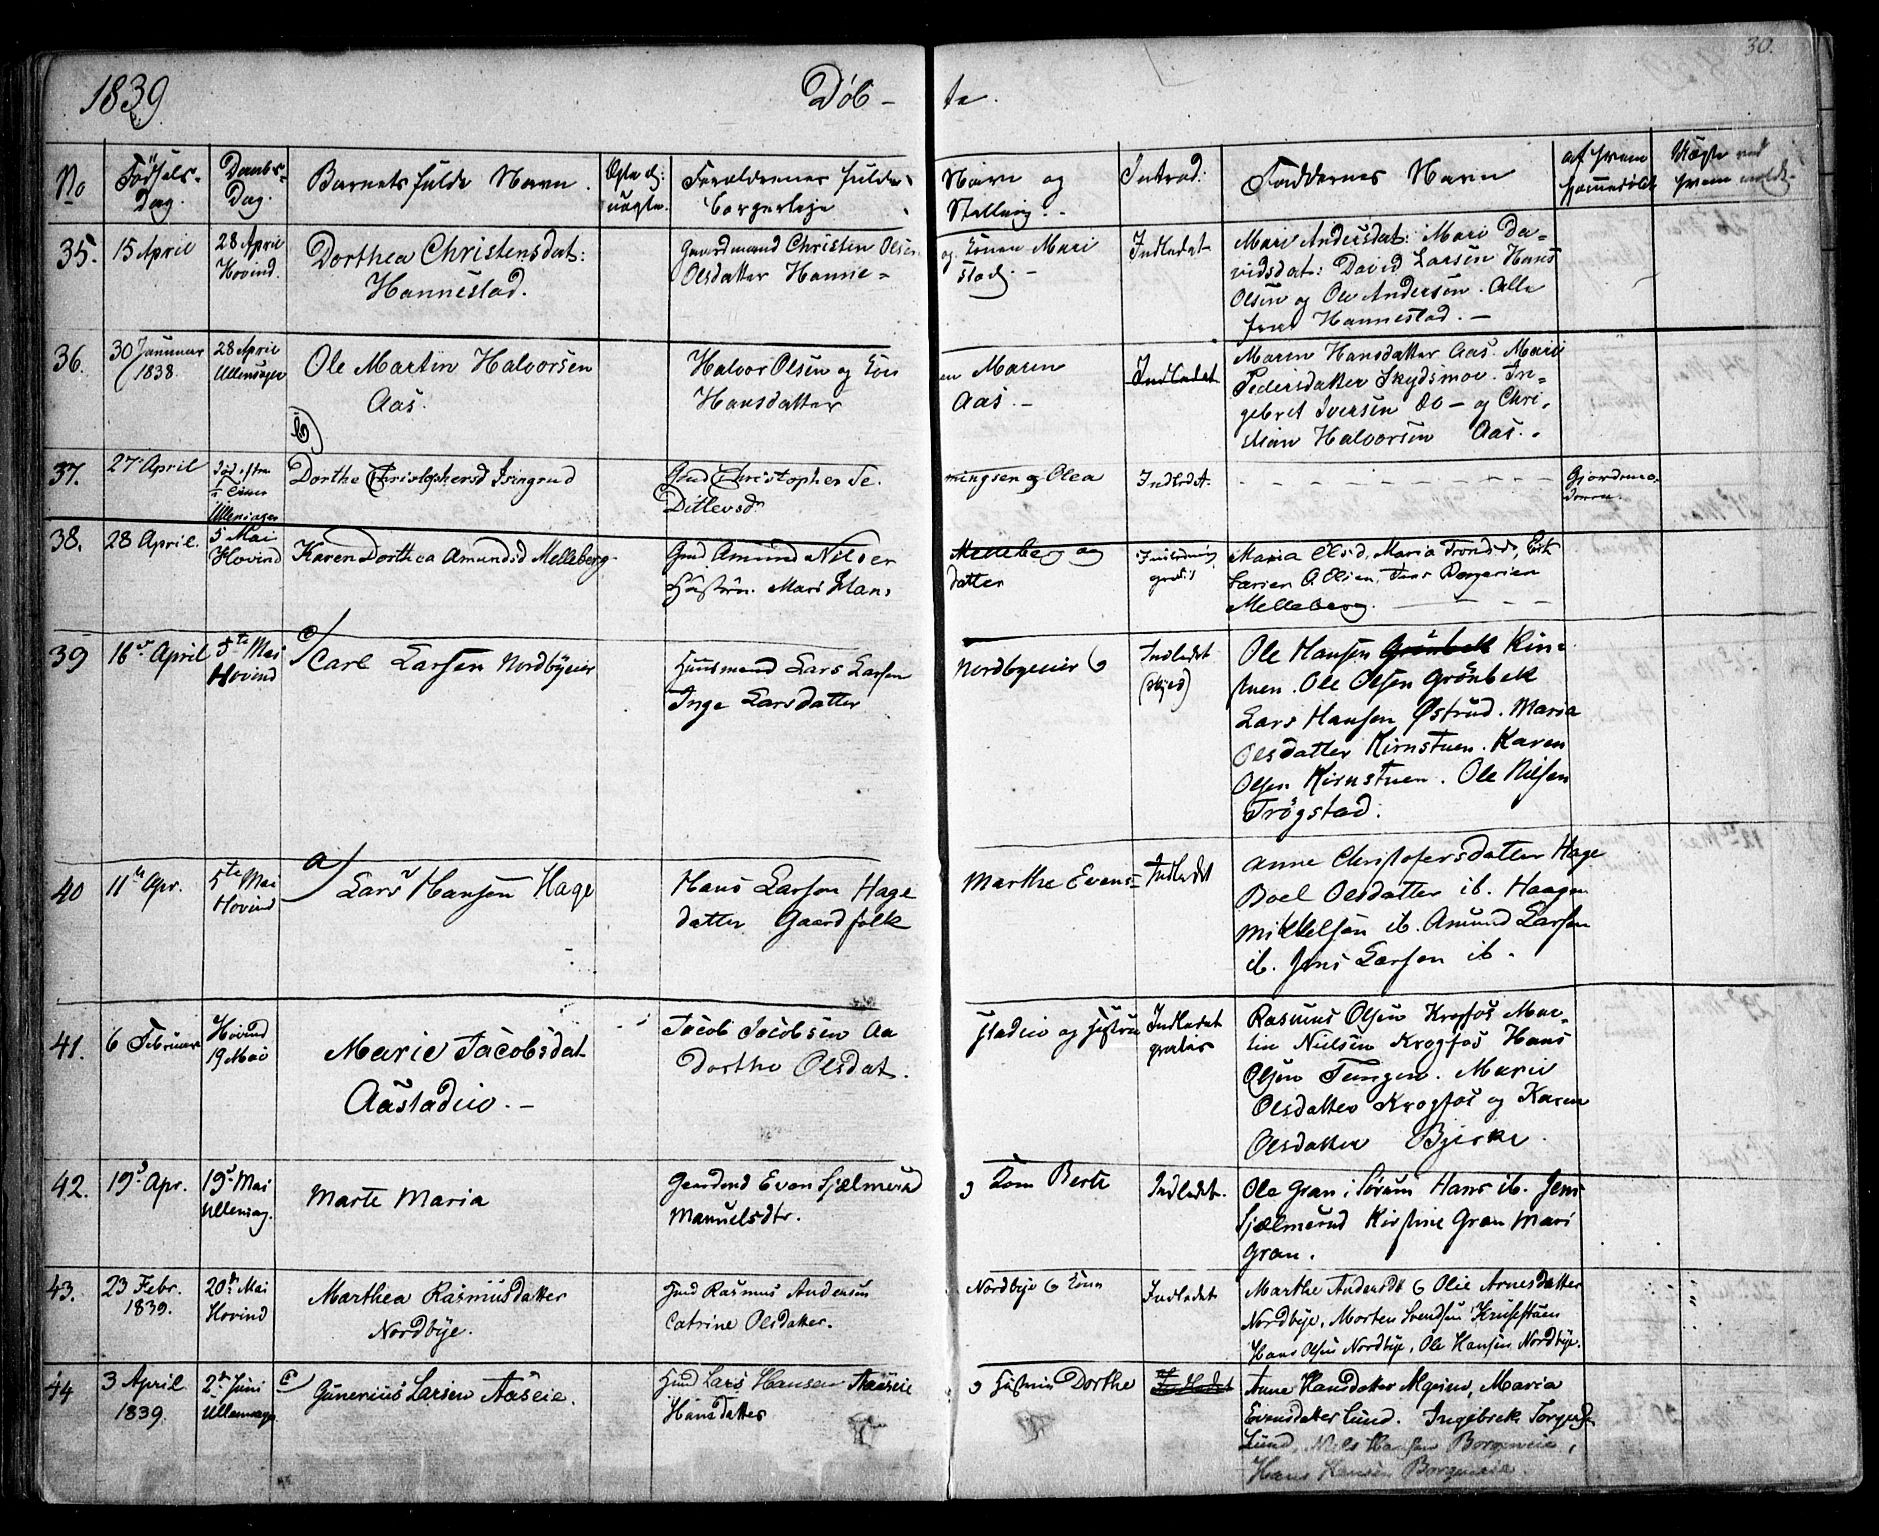 30.
1839 Døbte.
No
Fødsels-
Dag.
Daabs-
Dag.
Barnets fulde Navn.
Forældrenes fulde Navn og
Borgerleje Stilling.
Introd:
Faddernes Navn
35. 15 April
28 April
Hovind.
Dorthea Christensdat:
Hannestad.
Gaardmand Christen Olsen og Konen Mari
Olsdatter Hanne-stad.
Indledet
Mari Andersdat: Mari Da-
vidsdat: David Larsen Hans
Olsen og Ole Andersen. Alle
fra Hannestad. -
36. 30 Januar
1838.
28 April
Ullensager
Ole Martin Halvorsen
Aas.
Halvor Olsen og Konen Maren
Hansdatter Aas. -
Indledet
Maren Hansdatter Aas. Mari
Pedersdatter Skydsmoe. In-
gebret Iversen og Chri-
stian Halvorsen Aas.
37. 27 April
Ullensager
Dorthe Christophersd Isingrud
Christopher Te-mingsen og Olea
Ditlevsdr
Indledt.
Gjordemo-
deren.
38. 28 April.
5 Mai
Hovind
b)
Karen Dorthea Amundsd Melleberg
Amund Nilsen Melleberg og
Hustru Mari Hans datter
gratis
Maria Olsd, Maria Tronds
Larsen O. Olsen, Jens
Melleberg.
39 16 April
5te Mai
Hovind
Carl Larsen Nordbyeier
Huusmand Lars Larsen Nordbyeier
Inge Larsdatter
Indledet
Ole Hansen Grönbek Kirn-
stuen. Ole Olsen Grönbek
Lars Hansen Østrud. Maria
Olsdatter Kirnstuen. Karen
Olsen Kirnstuen. Ole Nilsen
Trögstad.
40 11te Apr.
5te Mai
Hovind
a)
Lars Hansen Hage
Hans Larsen Hage Marthe Evens-
datter Gaardfolk
Indledet
Anne Christofersdatter Hage
Boel Olsdatter ib. Haagen
Mikkelsen ib. Amund Larsen
ib. Jens Larsen ib.
41. 6 Februar
Hovind
19 Mai
Marie Jacobsdat
Aastadeie. -
Jacob Jacobsen Aastadeie og Hustru
Dorthe Olsdat.
Indledet
gratis
Rasmus Olsen Krogfos Mar-
tin Nielsen Krogfos Hans
Olsen Tangen. Marie
Olsdatter Krogfos og Karen
Olsdatter Bjerke.
42. 19 Apr.
19 Mai
Ullensag.
Marte Maria
Even Sjælmerud Kone Berte
Manuelsdtr.
Indledet.
Ole Gran i Sørum Hans ib. Jens
Sjælmerud Kirstine Gran Mari
Gran.
43. 23 Febr.
1839.
20 Mai
Hovind
Marthea Rasmusdatter
Nordbye.
Rasmus Andersen Nordbye & Kone
Catrine Olsdatter.
Indledet
Marthe & Olie Arnesdatter
Nordbye, Morten Svendsen
Hans Olsen Nordbye, Ole Hansen Nordbye.
44 3 April
1839.
2 Juni
Gunerius Larsen Aaseie.
Lars Hansen Aaseie Hustru Dorthe
Hansdatter
Indledet
Anne Hansdatter Maria
Evensdatter Lund. Ingebrek
Lund, Nils Hansen
Hans Hansen